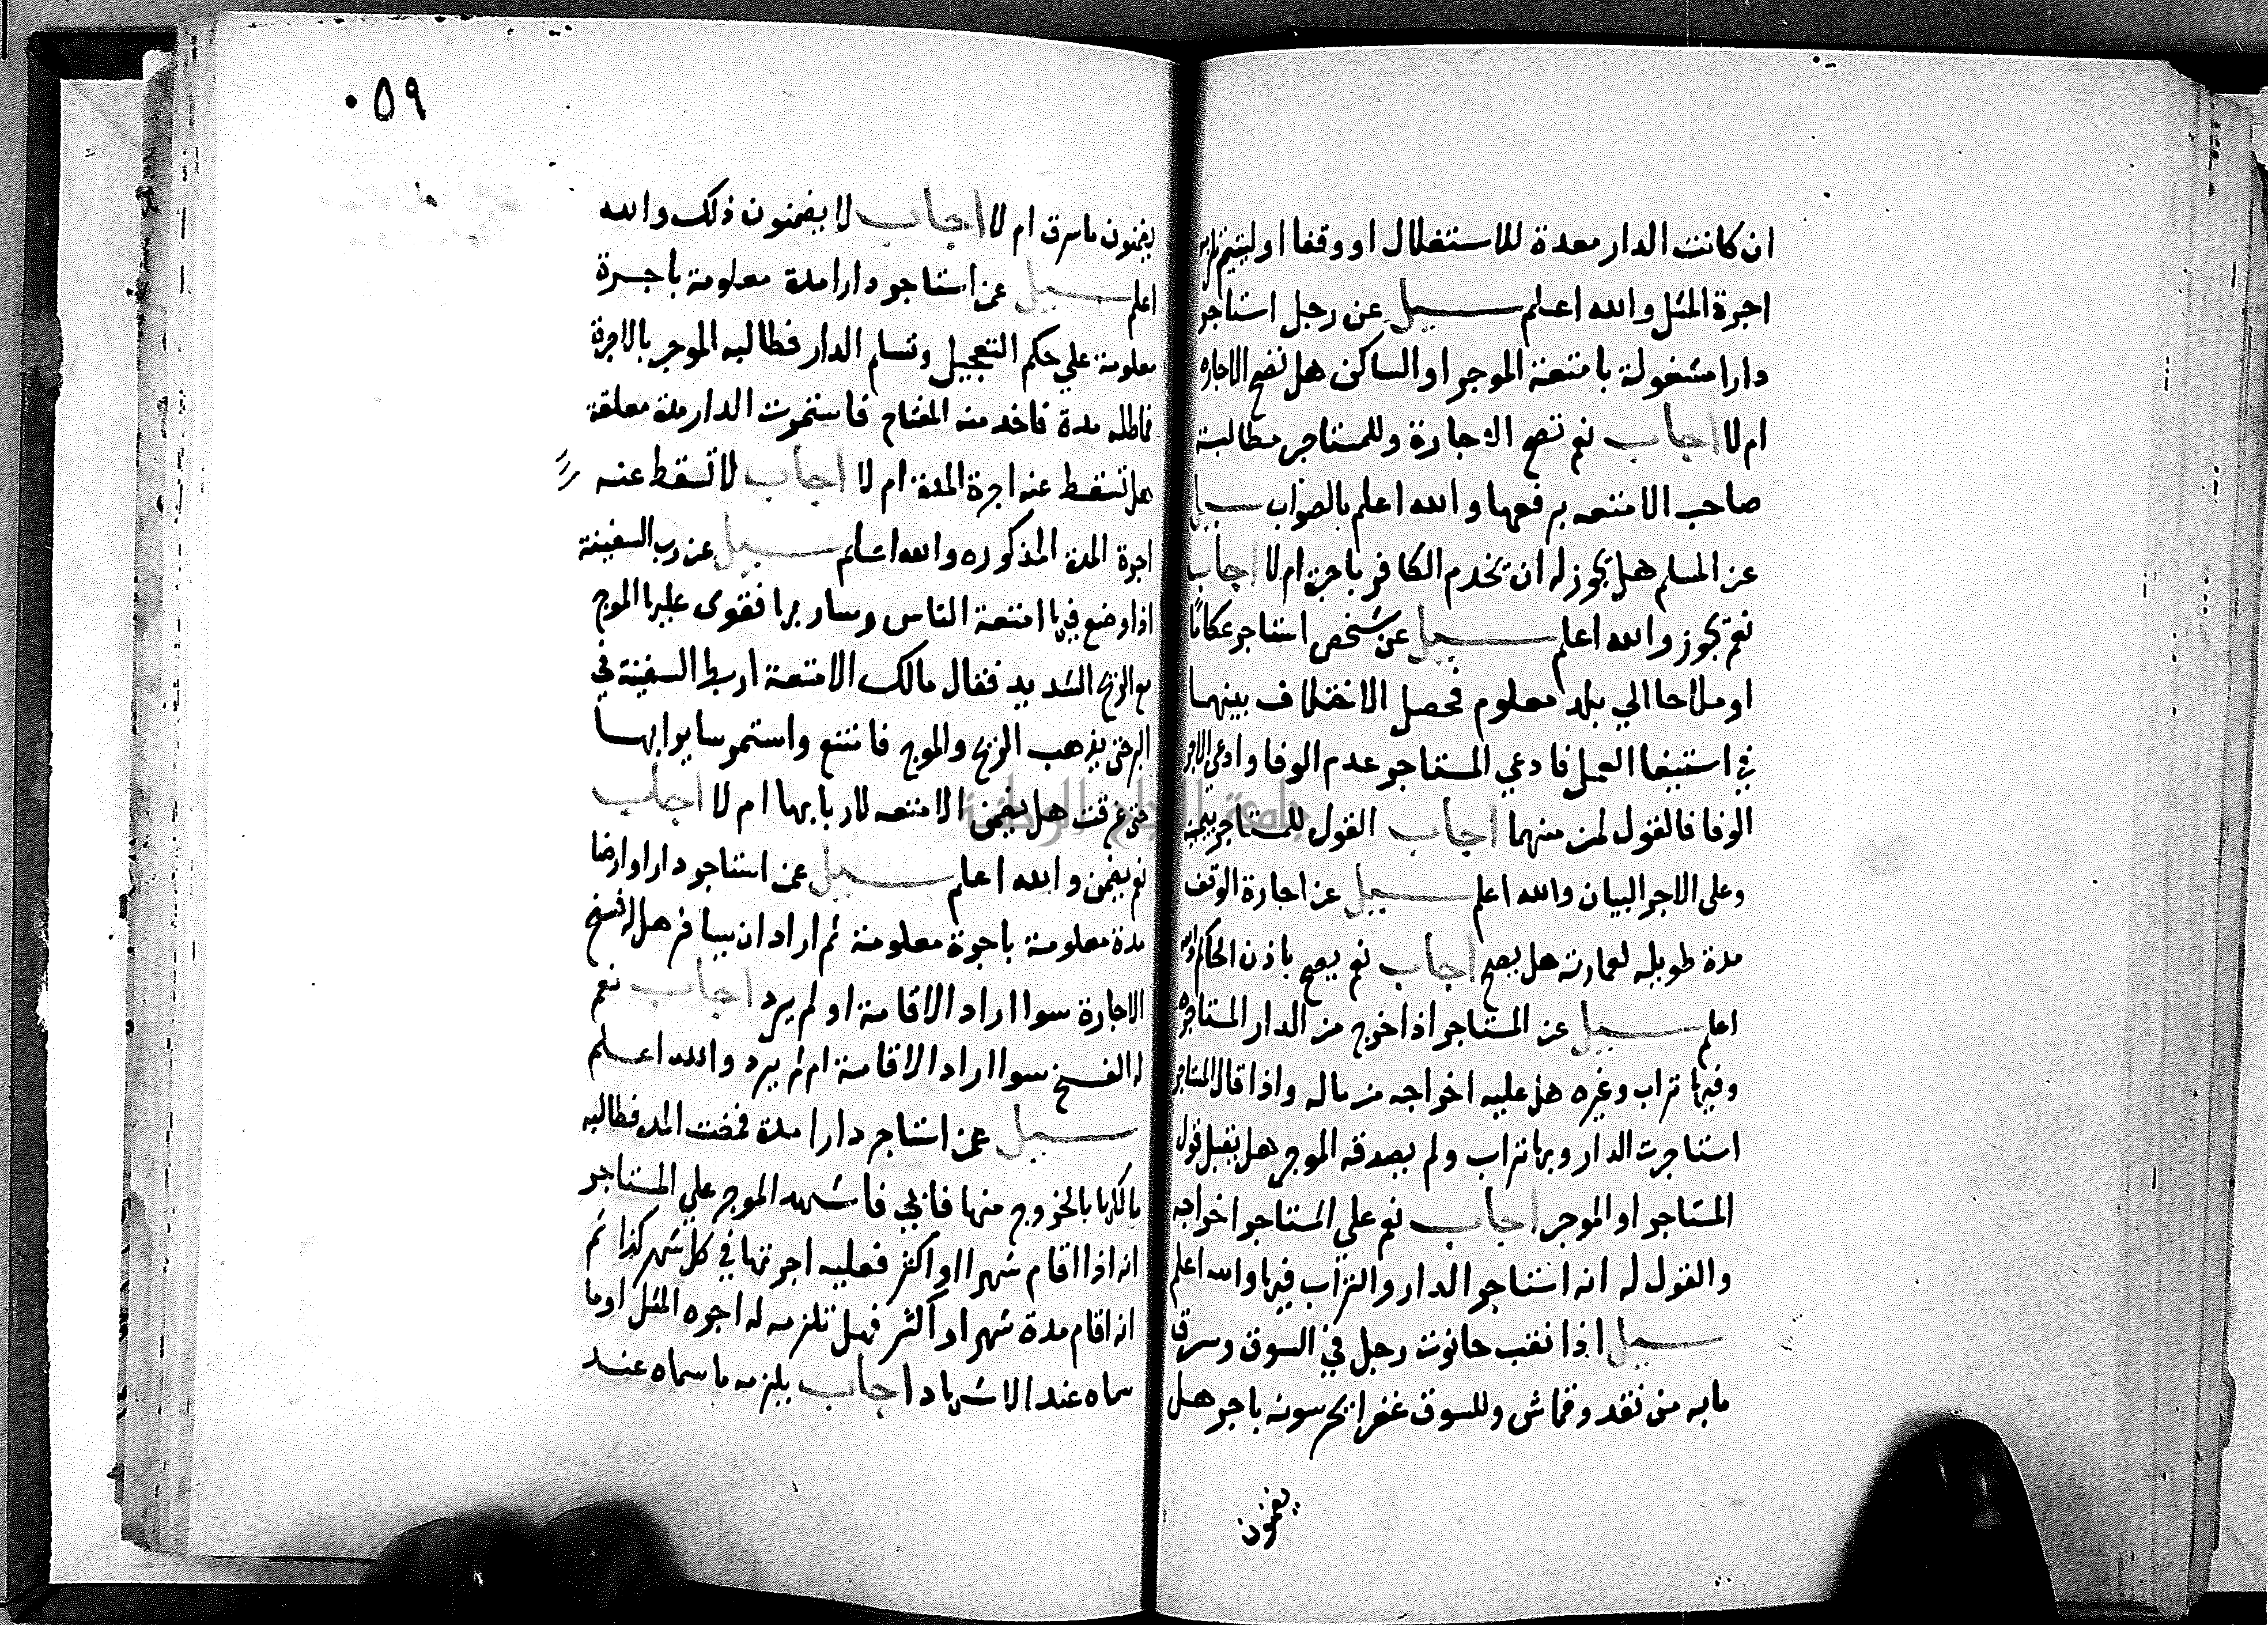 ان كانت الدار معدة للاستغلال او وقفا او ليتيم تلزمه
اجرة المثل والله اعلم سيل عن رجل استاجر
دارا مشغولة بامتعة الموجر او الساكن هل تصح الاجاره
ام لا اجاب نعم تصح الاجارة وللمستاجر مطالبة
صاحب الامتعه برفعها والله اعلم بالصواب سيل
عن المسلم هل يجوز له ان يخدم الكافر باجرة ام لا اجاب
نعم يجوز والله اعلم سيل عن شخص استاجر عكاما
او ملاحا الي بلد معلوم فحصل الاختلاف بينهما
في استيفا العمل فادعي المستاجر عدم الوفا وادعي الاجير
الوفا فالقول لمن منهما اجاب القول للمستاجر بيمينه
وعلى الاجير البيان والله اعلم سيل عن اجارة الوقف
مدة طويله لعمارته هل يصح اجاب نعم يصح باذن الحاكم والله
اعلم سيل عن المستاجر اذا خرج من الدار المستاجره
وفيها تراب وغيره هل عليه اخراجه من ماله واذا قال المستاجر
استاجرت الدار وبها تراب ولم يصدقه الموجر هل يقبل قول
المستاجر او الموجر اجاب نعم علي المستاجر اخراجه
والقول له انه استاجر الدار والتراب فيها والله اعلم
سيل اذا نقب حانوت رجل في السوق وسرق
مابه من نقد وقماش وللسوق غفرا يحرسونه باجر هل
يضمنون
٠٥٩
يضمنون ما سرق ام لا اجاب لا يضمنون ذلك والله
اعلم سيل عمن استاجر دارا مدة معلومة باجرة
معلومة علي حكم التعجيل وتسلم الدار فطالبه الموجر بالاجرة
فماطله مدة فاخد منه المفتاح فاستمرت الدار مدة معلقة
هل تسقط عنه اجرة المدة ام لا اجاب لا تسقط عنه
اجرة المدة المذكوره والله اعلم سيل عن رب السفينة
اذا وضع فيها امتعة الناس وسار بها فقوى عليها الموج
مع الريح الشديد فقال مالك الامتعة اربط السفينة في
البر حتى يذهب الريح والموج فامتنع واستمر سايرا بها
حتى غرقت هل يضمن الامتعه لاربابها ام لا اجاب
نعم يضمن والله اعلم سيل عمن استاجر دارا او ارضا
مدة معلومة باجرة معلومة ثم اراد ان يسافر هل له فسخ
الاجارة سوا اراد الاقامة او لم يرد اجاب نعم
له الفسخ سوا اراد الاقامة ام لم يرد والله اعلم
سيل عمن استاجر دارا مدة فمضت المده فطالبه
مالكها بالخروج منها فابي فاشهد الموجر علي المستاجر
انه اذا اقام شهرا او اكثر فعليه اجرتها في كل شهر كذا ثم
انه اقام مدة شهر او اكثر فهل تلزمه له اجره المثل او ما
سماه عند الاشهاد اجاب يلزمه ما سماه عند